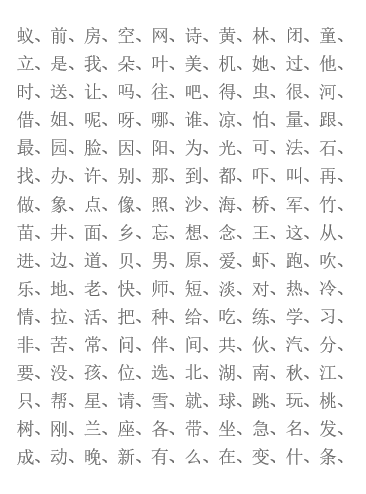 蚁、前、房、空、网、诗、黄、林、闭、童、
立、是、我、朵、叶、美、机、她、过、他、
时、送、让、吗、往、吧、得、虫、很、河、
借、姐、呢、呀、哪、谁、凉、怕、量、跟、
最、园、脸、因、阳、为、光、可、法、石、
找、办、许、别、那、到、都、吓、叫、再、
做、象、点、像、照、沙、海、桥、军、竹、
苗、井、面、乡、忘、想、念、王、这、从、
进、边、道、贝、男、原、爱、虾、跑、吹、
乐、地、老、快、师、短、淡、对、热、冷、
情、拉、活、把、种、给、吃、练、学、习、
非、苦、常、问、伴、间、共、伙、汽、分、
要、没、孩、位、选、北、湖、南、秋、江、
只、帮、星、请、雪、就、球、跳、玩、桃、
树、刚、兰、座、各、带、坐、急、名、发、
成、动、晚、新、有、么、在、变、什、条、